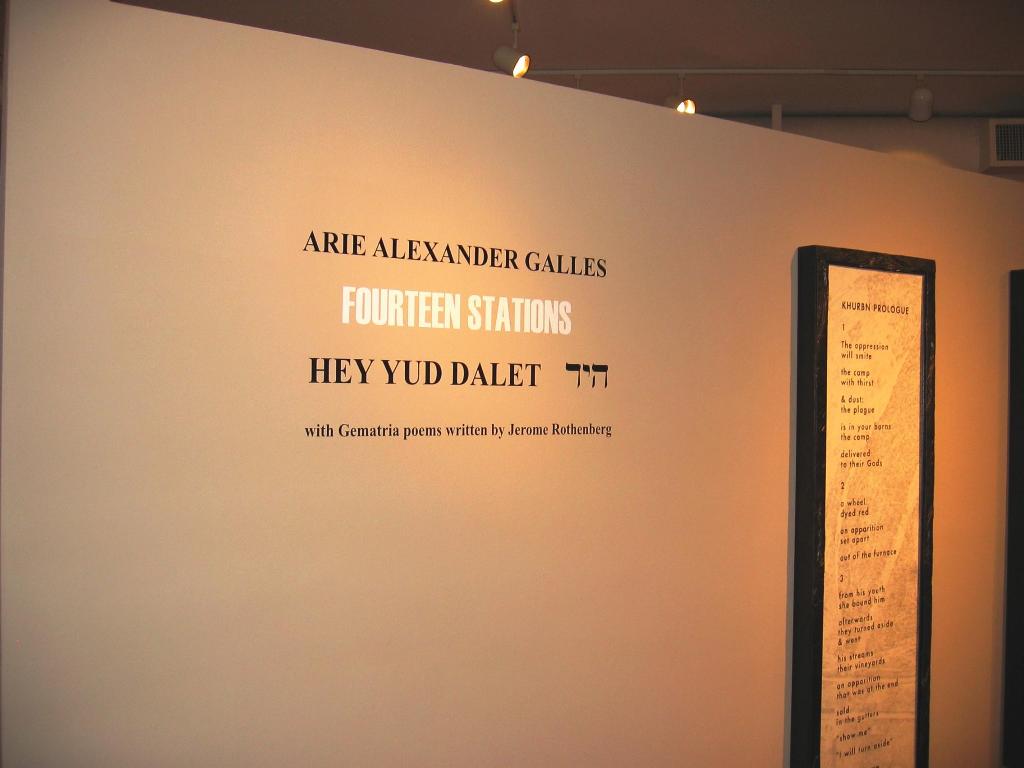 ARIE ALEXANDER GALLES
FOURTEEN STATIONS
HEY YUD DALET היד
with Gematria poems written by Jerome Rothenberg
KHURBN PROLOGUE
1
The oppression
will smite
the camp
with thirst
& dust:
the plague
is in your barns
the camp
delivered
to their Gods
2
a wheel
dyed red
an apparition
set apart
out of the furnace
3
from his youth
she bound him
afterwards
they turned aside
& went
his streams
their vineyards
an apparition
that was at the end
sold
in the gutters
"show me"
"i will turn aside"